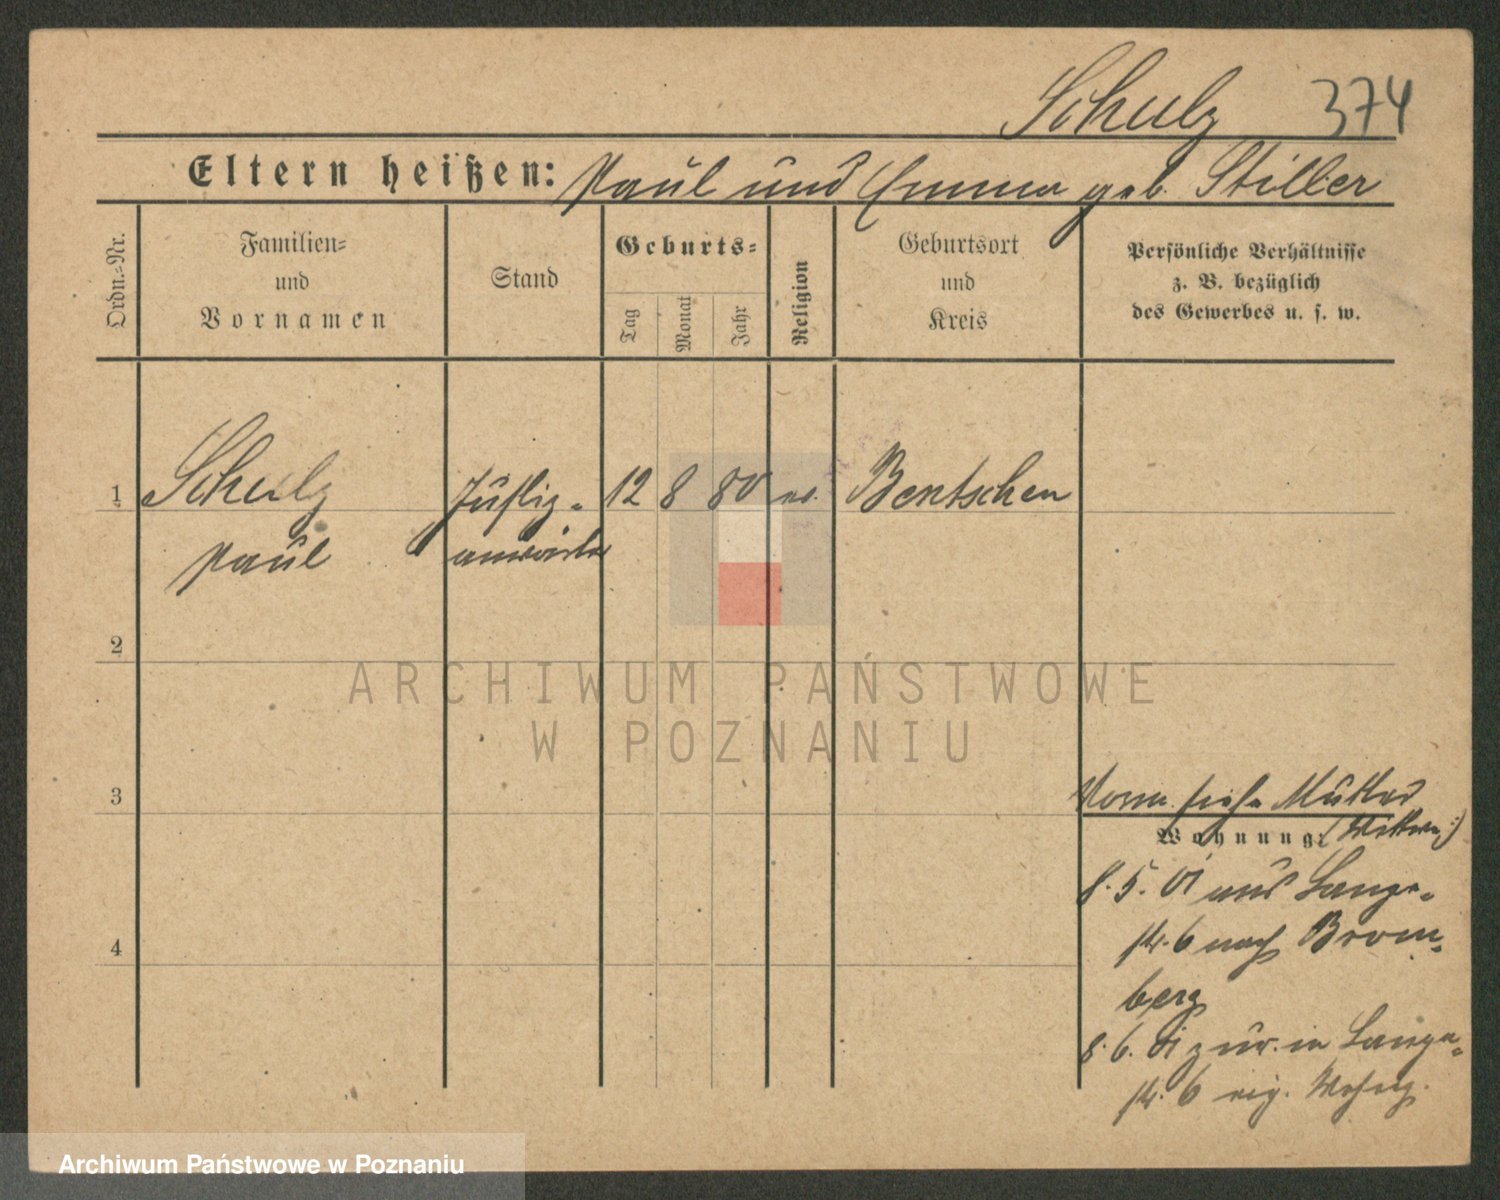 Schulz 374
Eltern heißen: Paul und Emma geb. Stiller
Ordn.-Nr.
Familien-
und
Vornamen
Stand
Geburts-
Tag
Monat
Jahr
Religion
Geburtsort
und
Kreis
Persönliche Verhältnisse
z. B. bezüglich
des Gewerbes u. s. w.
1 Schulz Justiz- 12 8 80 ev. Bentschen
Paul anwärter
2
ARCHIWUM PAŃSTWOWE
W POZNANIU
3
Vorm. siehe Mutter
Wohnung: (Wittwe)
8. 5. 01 aus Lange-
str. 6 nach Brom-
4
berg
8. 6. 01 zur. in Lange-
str. 6 eig. Wohng.
Archiwum Państwowe w Poznaniu